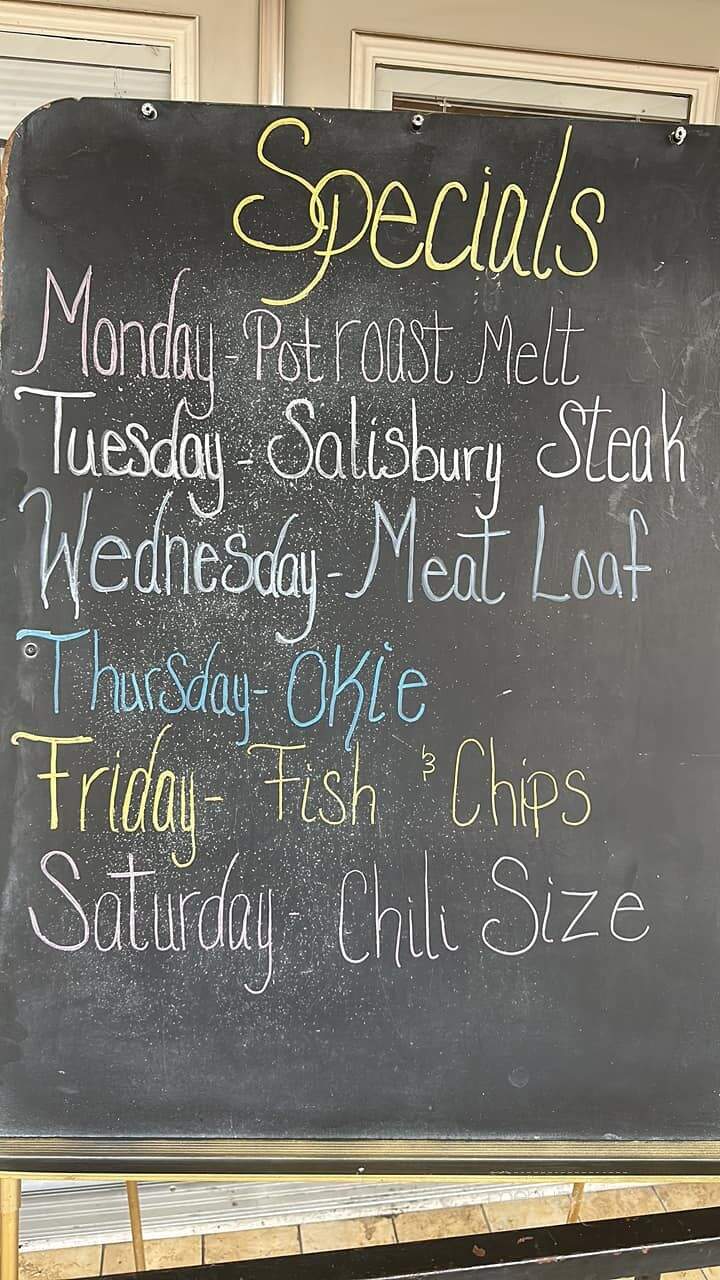 Specials
Monday - Pot roast Melt
Tuesday - Salisbury Steak
Wednesday - Meat Loaf
Thursday - Okie
Friday - Fish & Chips
Saturday - Chili Size